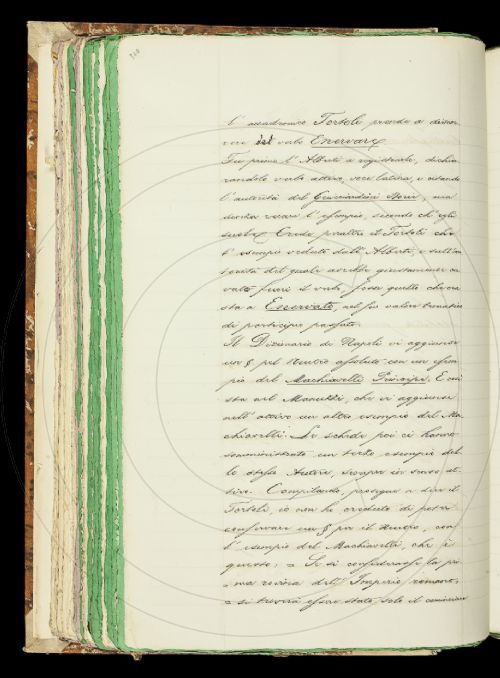 l'accademico Tortoli, prende a discor
rere del verbo Enervare
Fu primo l'Alberti a registrarlo, dichia
randolo verbo attivo, voce latina, e citando
l'autorità del Guicciardini Storia, ma
senza recare l'esempio, secondo ch'egli
suole. Crede peraltro il Tortoli che
l'esempio veduto dall'Alberti, e sull'au
torità del quale avrebbe giustamente ca
vato fuori il verbo, fosse quello che ora
sta a Enervato, nel suo valore tematico
di participio passato.
Il Dizionario di Napoli vi aggiunse
un § pel Neutro assoluto con un esem
pio del Machiavelli Principe. E così
sta nel Manuzzi, che vi aggiunse
nell'attivo un altro esempio del Ma
chiavelli. Le schede poi ci hanno
somministrato un terzo esempio del
lo stesso Autore, sempre in senso at
tivo. Compilando, prosegue a dire il
Tortoli, io non ho creduto di poter
conservare un § per il Neutro, con
l'esempio del Machiavelli, che è
questo; = Se si considerassi la pri
= ma rovina dell'Imperio romano,
= si troverà essere stato solo il cominciare